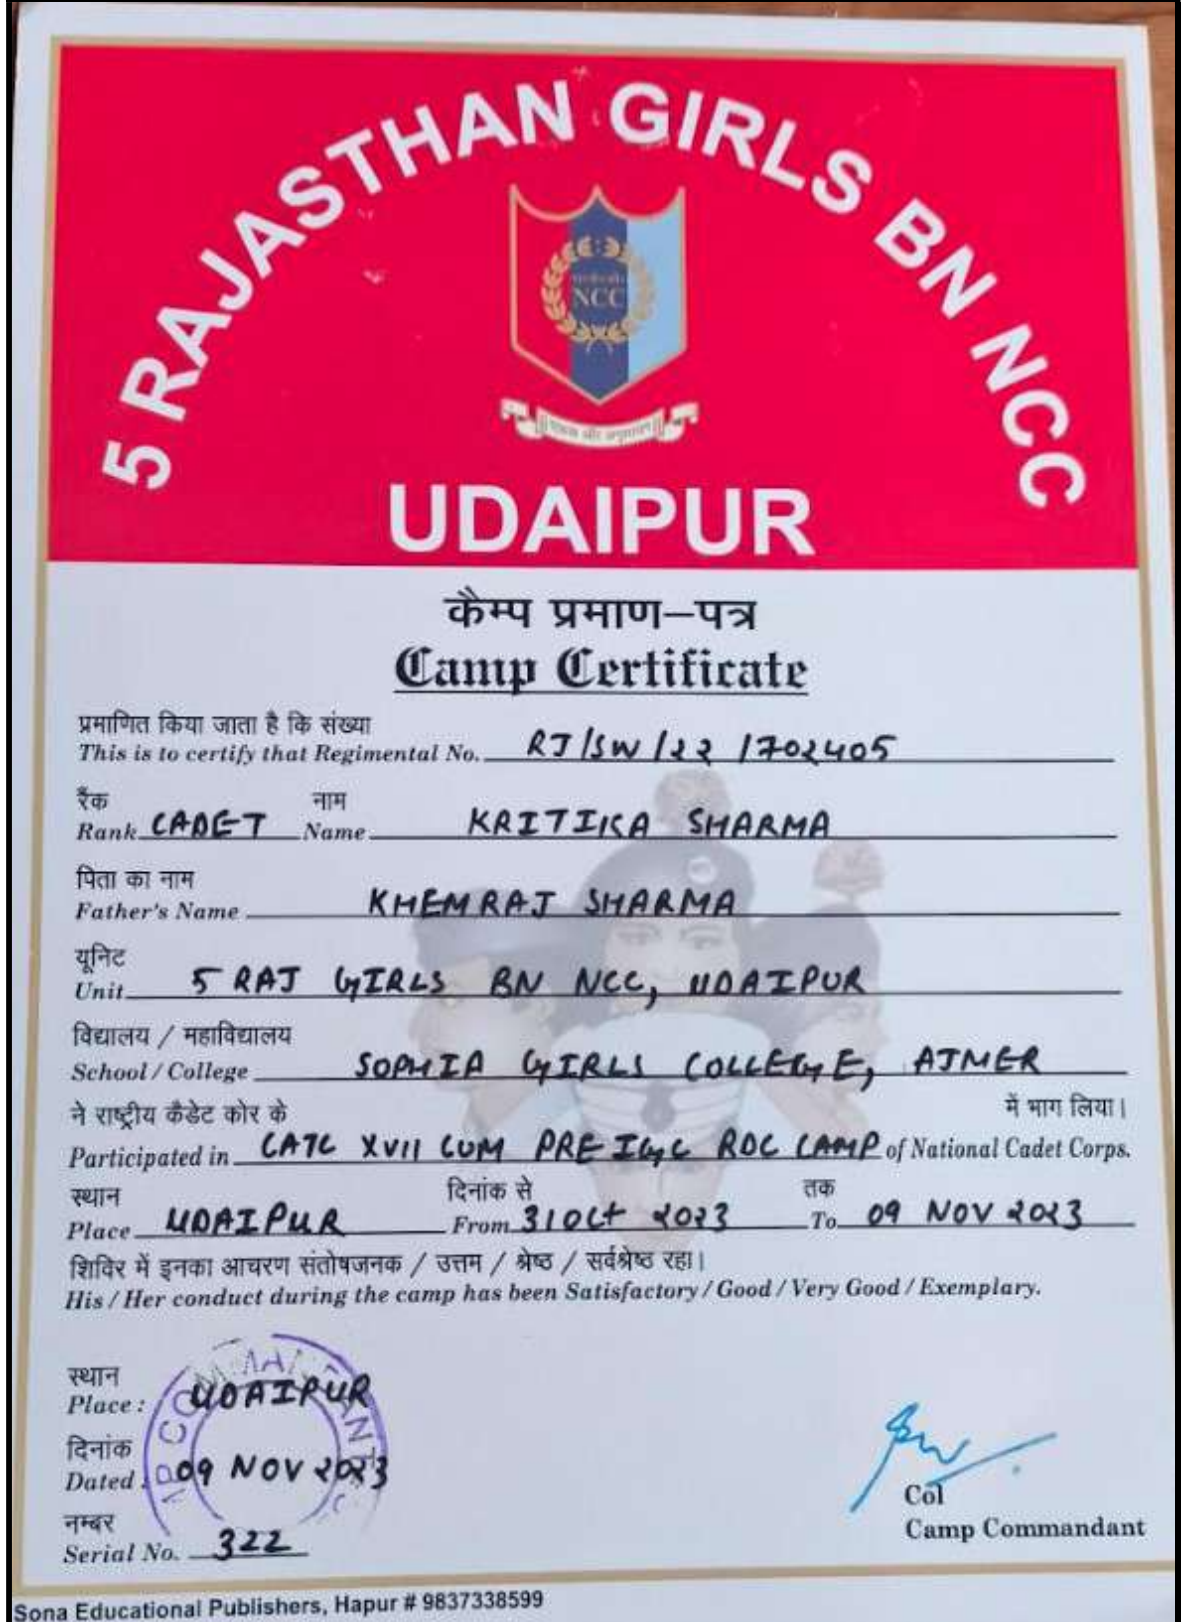 5 RAJASTHAN GIRLS BN NCC
NCC
UDAIPUR
कैम्प प्रमाण–पत्र
Camp Certificate
प्रमाणित किया जाता है कि संख्या
This is to certify that Regimental No. RJ/SW/22/702405
रैंक नाम
Rank CADET Name KRITIKA SHARMA
पिता का नाम
Father's Name KHEMRAJ SHARMA
यूनिट
Unit 5 RAJ GIRLS BN NCC, UDAIPUR
विद्यालय / महाविद्यालय
School / College SOPHIA GIRLS COLLEGE, AJMER
ने राष्ट्रीय कैडेट कोर के में भाग लिया।
Participated in CATC XVII CUM PRE IGC RDC CAMP of National Cadet Corps.
स्थान दिनांक से तक
Place UDAIPUR From 31 Oct 2023 To 09 NOV 2023
शिविर में इनका आचरण संतोषजनक / उत्तम / श्रेष्ठ / सर्वश्रेष्ठ रहा।
His / Her conduct during the camp has been Satisfactory / Good / Very Good / Exemplary.
स्थान
Place : UDAIPUR
दिनांक
Dated : 09 NOV 2023
नम्बर
Serial No. 322
Col
Camp Commandant
Sona Educational Publishers, Hapur # 9837338599